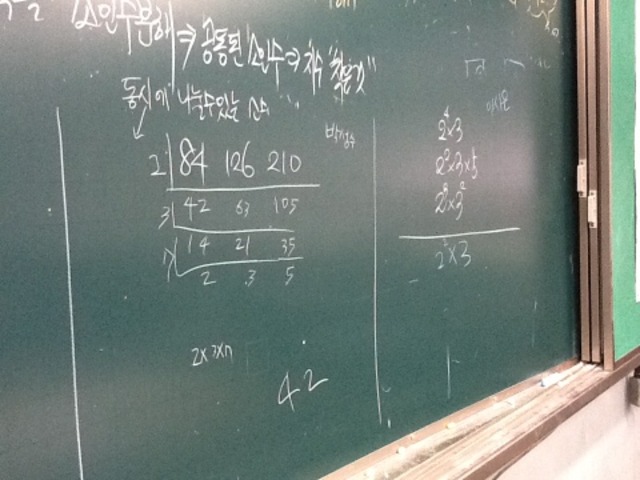 소인수분해 ⇒ 공통된 소인수 ⇒ 차수 "작은것"
동시에 나눌수있는 소수
2 84 126 210
3 42 63 105
7 14 21 35
2 3 5
2×3×7
42
2⁴×3
2²×3×5
2³×3²
2²×3